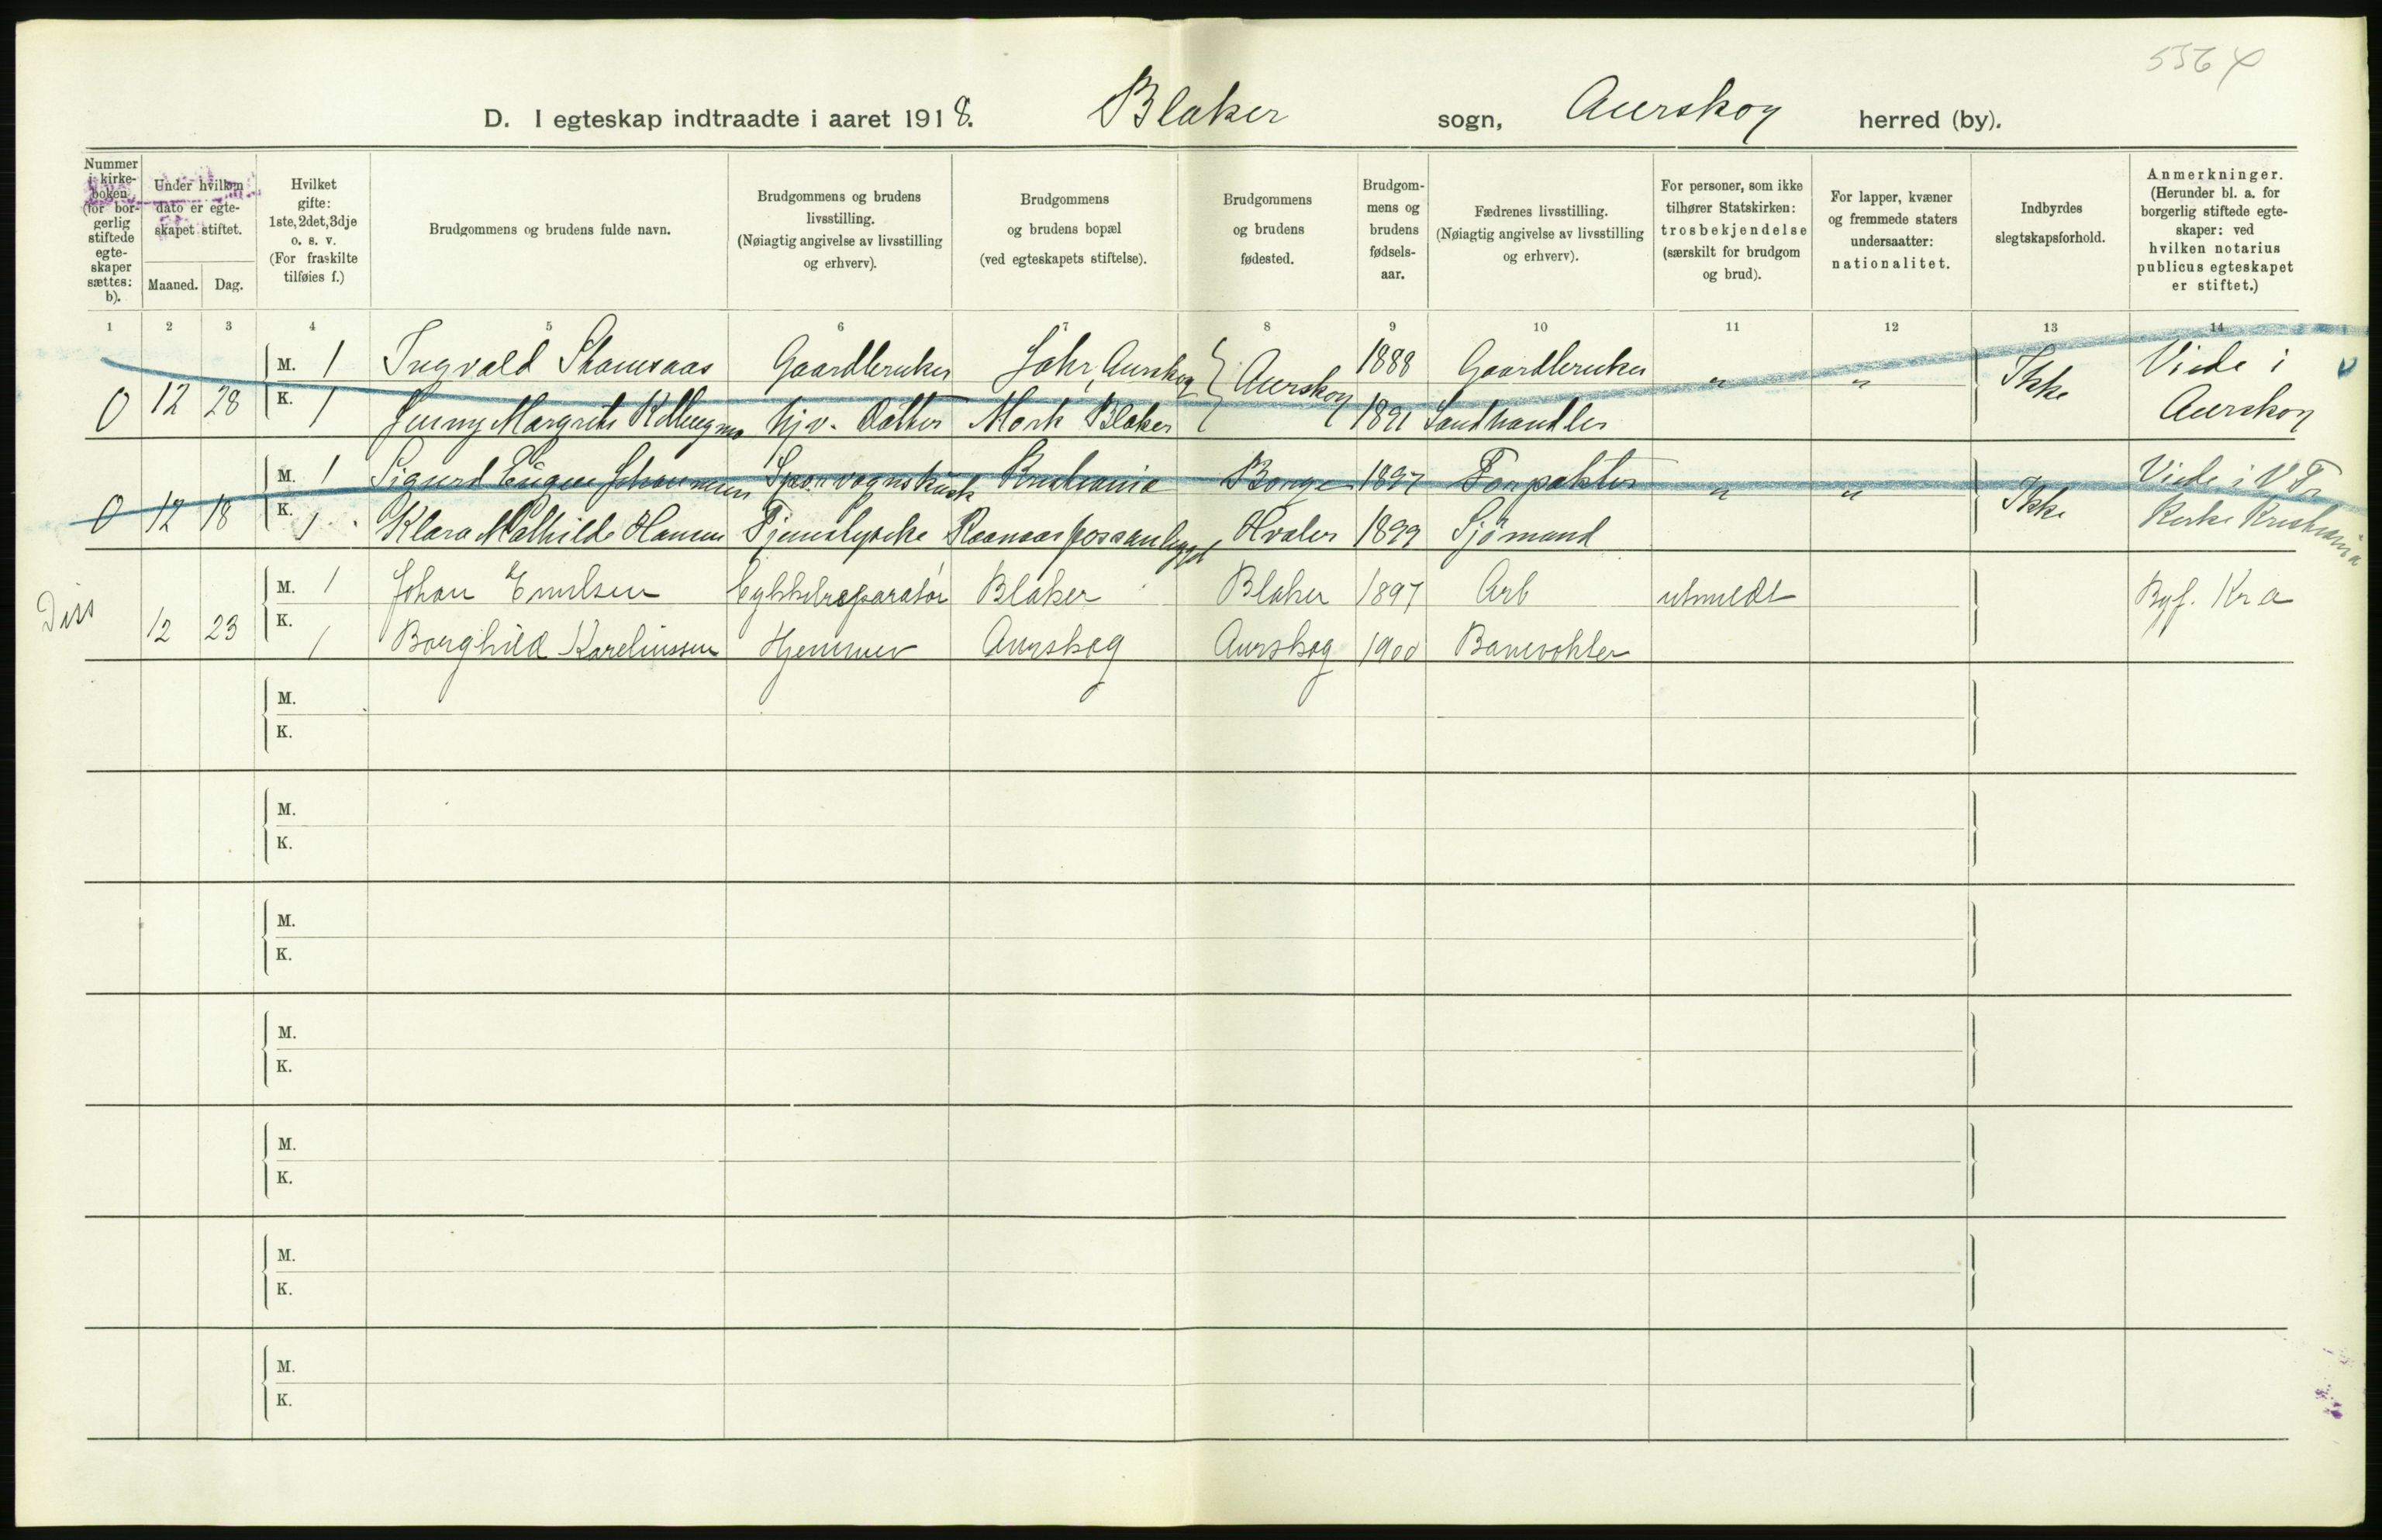 536
D. I egteskap indtraadte i aaret 1918. Blaker sogn, Aurskog herred (by).
Nummer i kirkeboken (for borgerlig stiftede egteskaper sættes: b).
Under hvilken dato er egteskapet stiftet.
Maaned. Dag.
Hvilket gifte: 1ste, 2det, 3dje o. s. v. (For fraskilte tilføies f.)
Brudgommens og brudens fulde navn.
Brudgommens og brudens livsstilling. (Nøiagtig angivelse av livsstilling og erhverv).
Brudgommens og brudens bopæl (ved egteskapets stiftelse).
Brudgommens og brudens fødested.
Brudgommens og brudens fødselsaar.
Fædrenes livsstilling. (Nøiagtig angivelse av livsstilling og erhverv).
For personer, som ikke tilhører Statskirken: trosbekjendelse (særskilt for brudgom og brud).
For lapper, kvæner og fremmede staters undersaatter: nationalitet.
Indbyrdes slegtskapsforhold.
Anmerkninger. (Herunder bl. a. for borgerlig stiftede egteskaper: ved hvilken notarius publicus egteskapet er stiftet.)
1 2 3 4 5 6 7 8 9 10 11 12 13 14
M. 1 Ingvald Gaardbruker Aurskog 1888 Gaardbruker Viede i
0 12 28 Aurskog " " Ikke
K. 1 Jenny Margrete Hjv. Datter Mork Blaker 1891 Landhandler Aurskog
M. 1 Sigurd Eugen Johannessen Sporvognskusk Kristiania Borge 1897 Forpakter Viede i V Fr
0 12 18 " " Ikke
K. 1 Klara Mathilde Hansen Tjenestepike Raanaasfossanlegget Hvaler 1899 Sjömand Kirke Kristiania
Diss M. 1 Johan Emilsen Cykkelreparatør Blaker Blaker 1897 Arb utmeldt Byf. Kra
12 23 K. 1 Borghild Karelinssen Hjemmev Aurskog Aurskog 1900 Banevokter
M.
K.
M.
K.
M.
K.
M.
K.
M.
K.
M.
K.
M.
K.